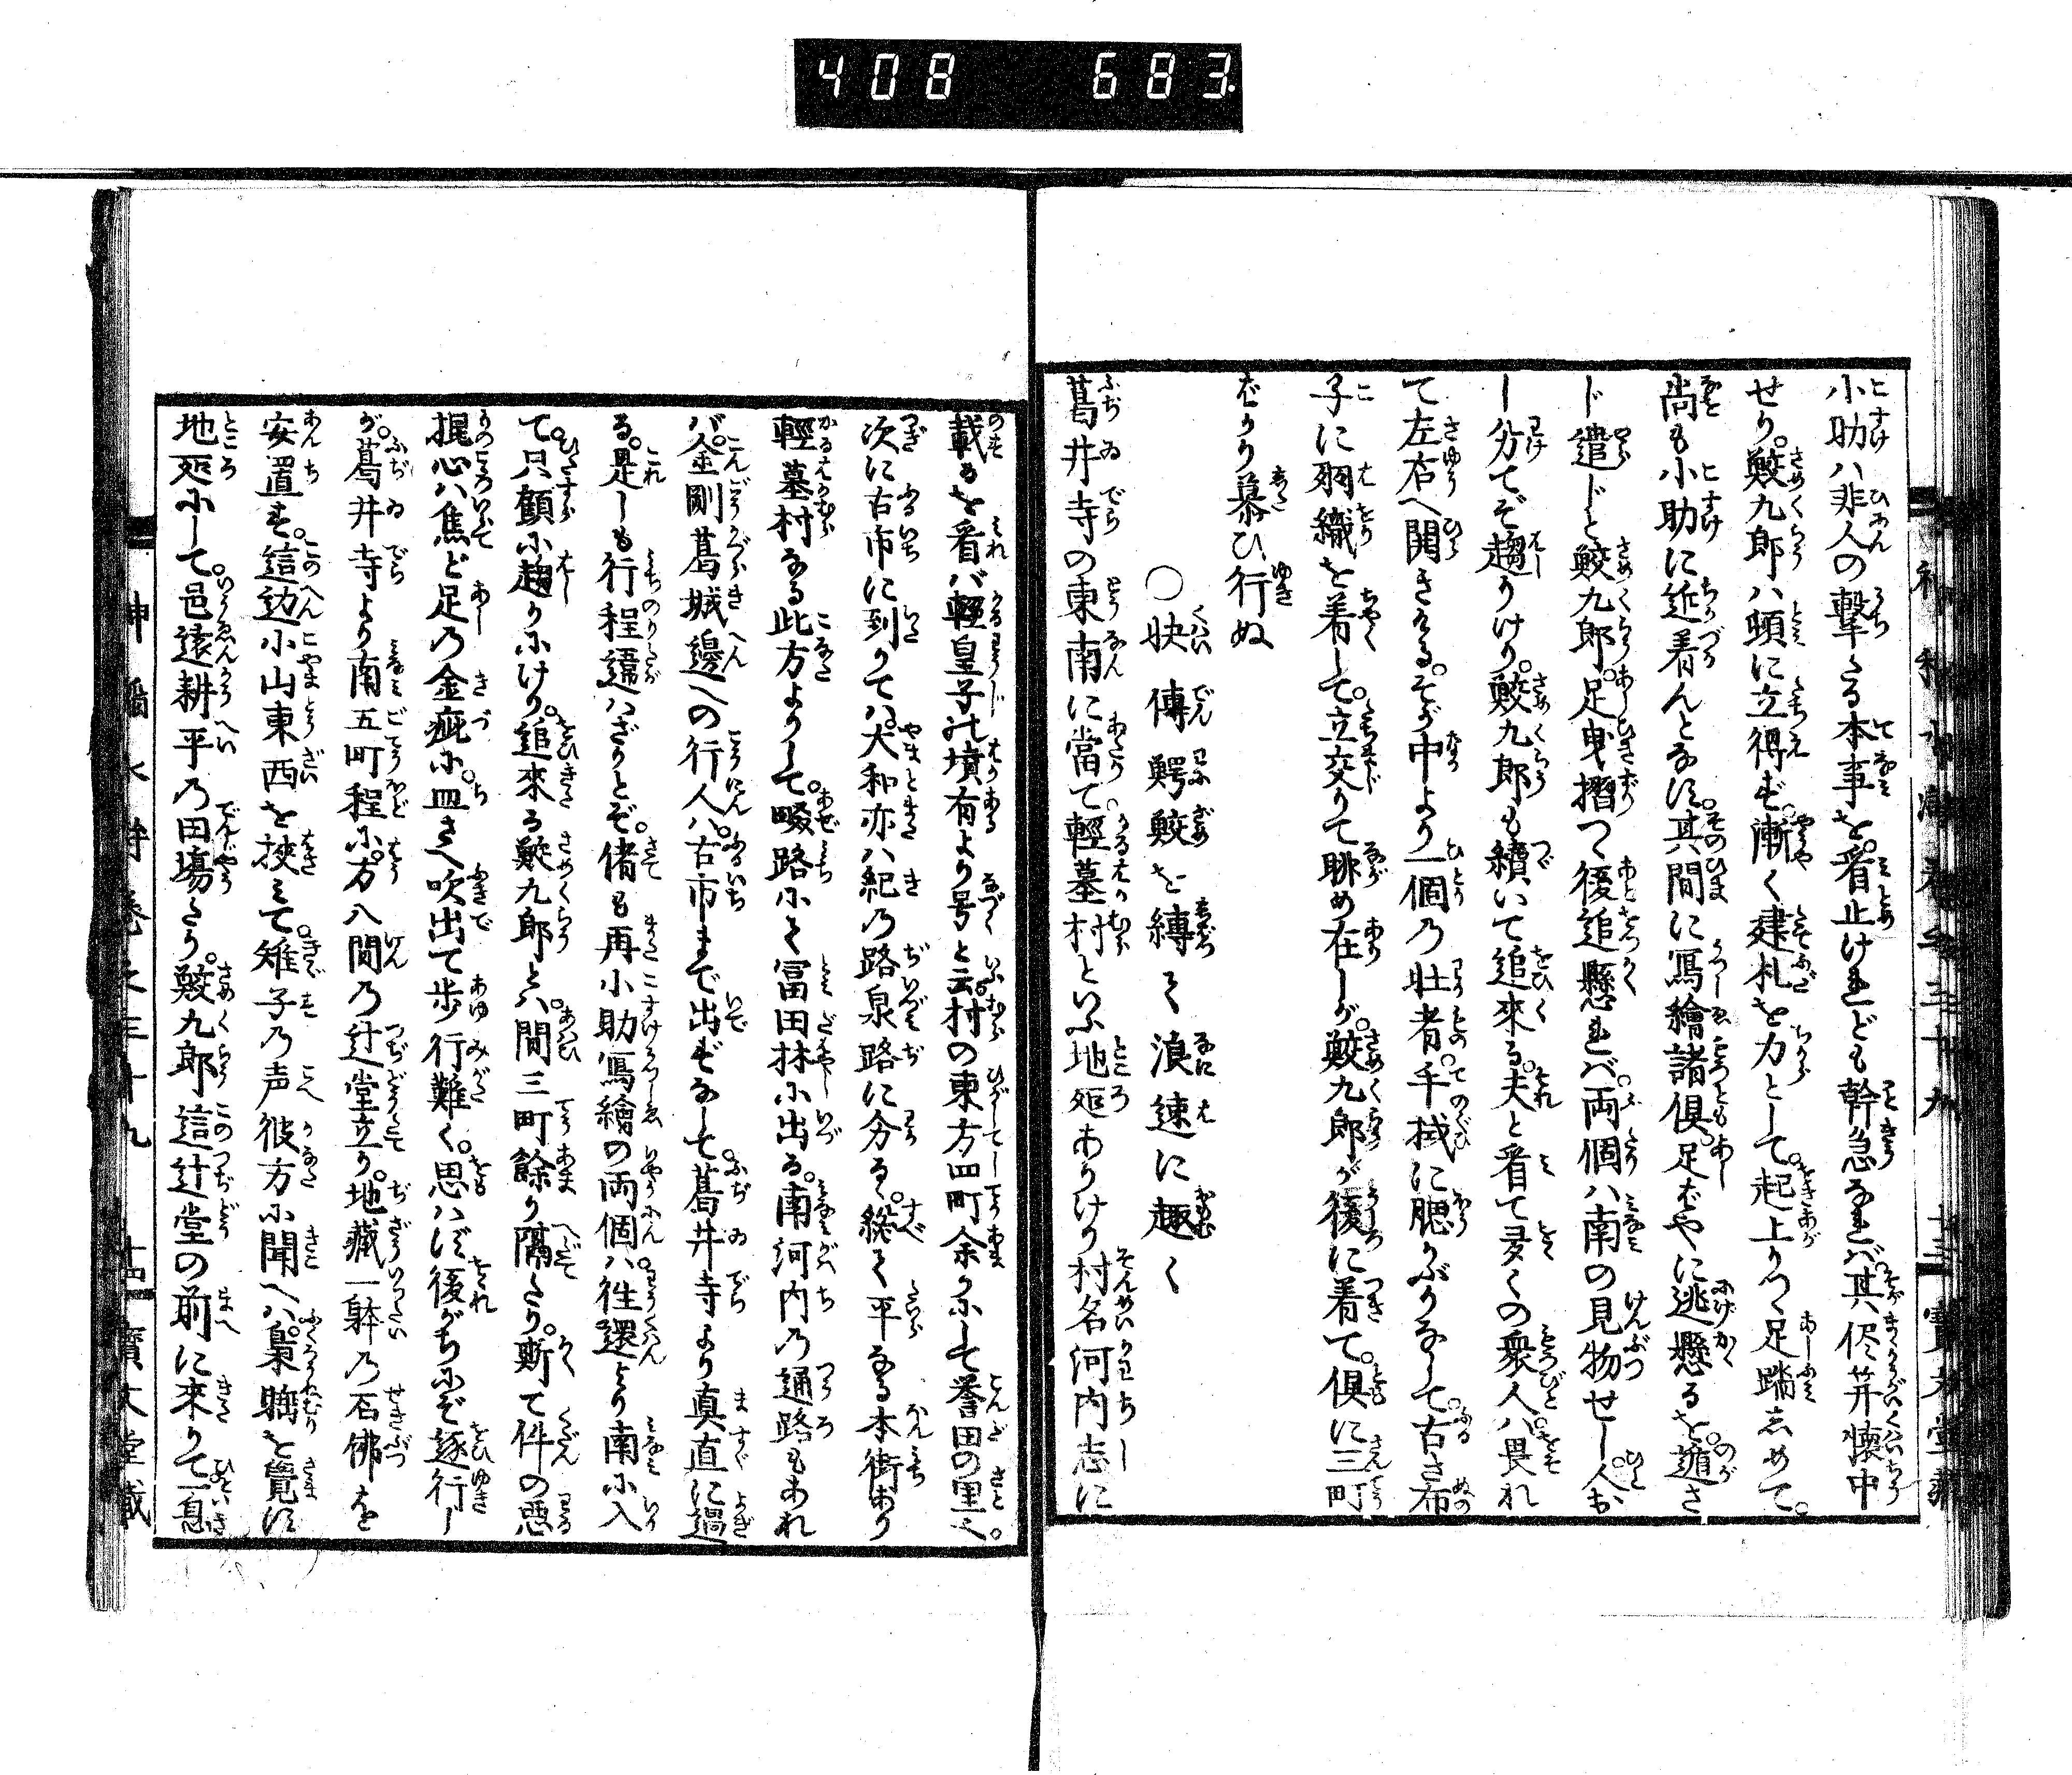 408 683
小助ハ非人の撃たる本事を。看止けれども幹急なれバ。其侭笄懐中
せり。鮫九郎ハ頓に立得ず。漸く建札を力として。起上りつゝ足踏しめて。
尚も小助に近着んとなす。其間に寫繪諸倶。足ばやに逃懸るを。遁さ
じ遣じと鮫九郎。足曳摺つゝ後追懸れバ。両個ハ南の見物せし人お
し分てぞ趨りけり。鮫九郎も續いて追來る。夫と看て多くの衆人ハ。畏れ
て左右へ開きける。そが中より一個の壮者。手拭に腮かぶりなして。古き布
子に羽織を着して。立交りて眺め在しが。鮫九郎が後に着て。倶に三町
ばかり慕ひ行ぬ
○快傳鰐鮫を縛て浪速に趣く
葛井寺の東南に當て。輕墓村といふ地処ありけり村名河内志に
載るを看バ輕皇子の墳有より号と云。村の東方四町余りにして誉田の里へ。
次に古市に到りてハ。大和亦ハ紀の路泉路に分る。総て平なる本街あり
輕墓村なる此方よりして。畷路にて冨田林に出る。南河内の通路もあれ
バ。金剛葛城邊への行人ハ。古市まで出ずなして。葛井寺より真直に過
る。是しも行程違ハざりとぞ。偖も再小助寫繪の両個ハ。往還より南に入
て。只顧に趨りにけり。追來る鮫九郎とハ。間三町餘り隔たり。斯て件の悪
棍心ハ焦ど足の金疵に。血さへ吹出て歩行難く。思ハず後がちにぞ逐行し
が。葛井寺より南五町程に。方八間の辻堂立り。地藏一躰の石佛を
安置す。這边小山東西を挾みて。雉子の声彼方に聞へハ。梟睡を覺す
地処にして。邑遠耕平の田塲たり。鮫九郎這辻堂の前に來りて一息